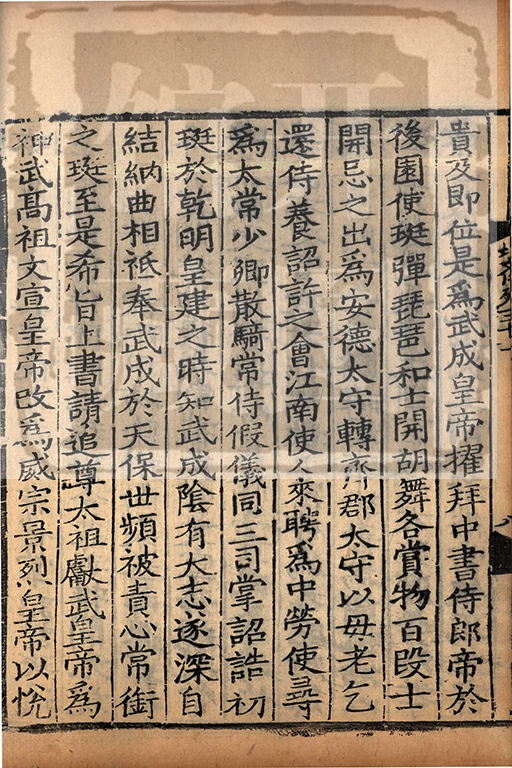 貴及即位是爲武成皇帝擢拜中書侍郎帝於
後園使珽彈琵琶和士開胡舞各賞物百段士
開忌之出爲安德太守轉齊郡太守以母老乞
還侍養詔許之會江南使人來聘爲中勞使尋
爲太常少卿散騎常侍假儀同三司掌詔誥初
珽於乾明皇建之時知武成陰有大志遂深自
結納曲相祗奉武成於天保世頻被責心常銜
之珽至是希旨上書請追尊太祖獻武皇帝爲
神武高祖文宣皇帝改爲威宗景烈皇帝以悅